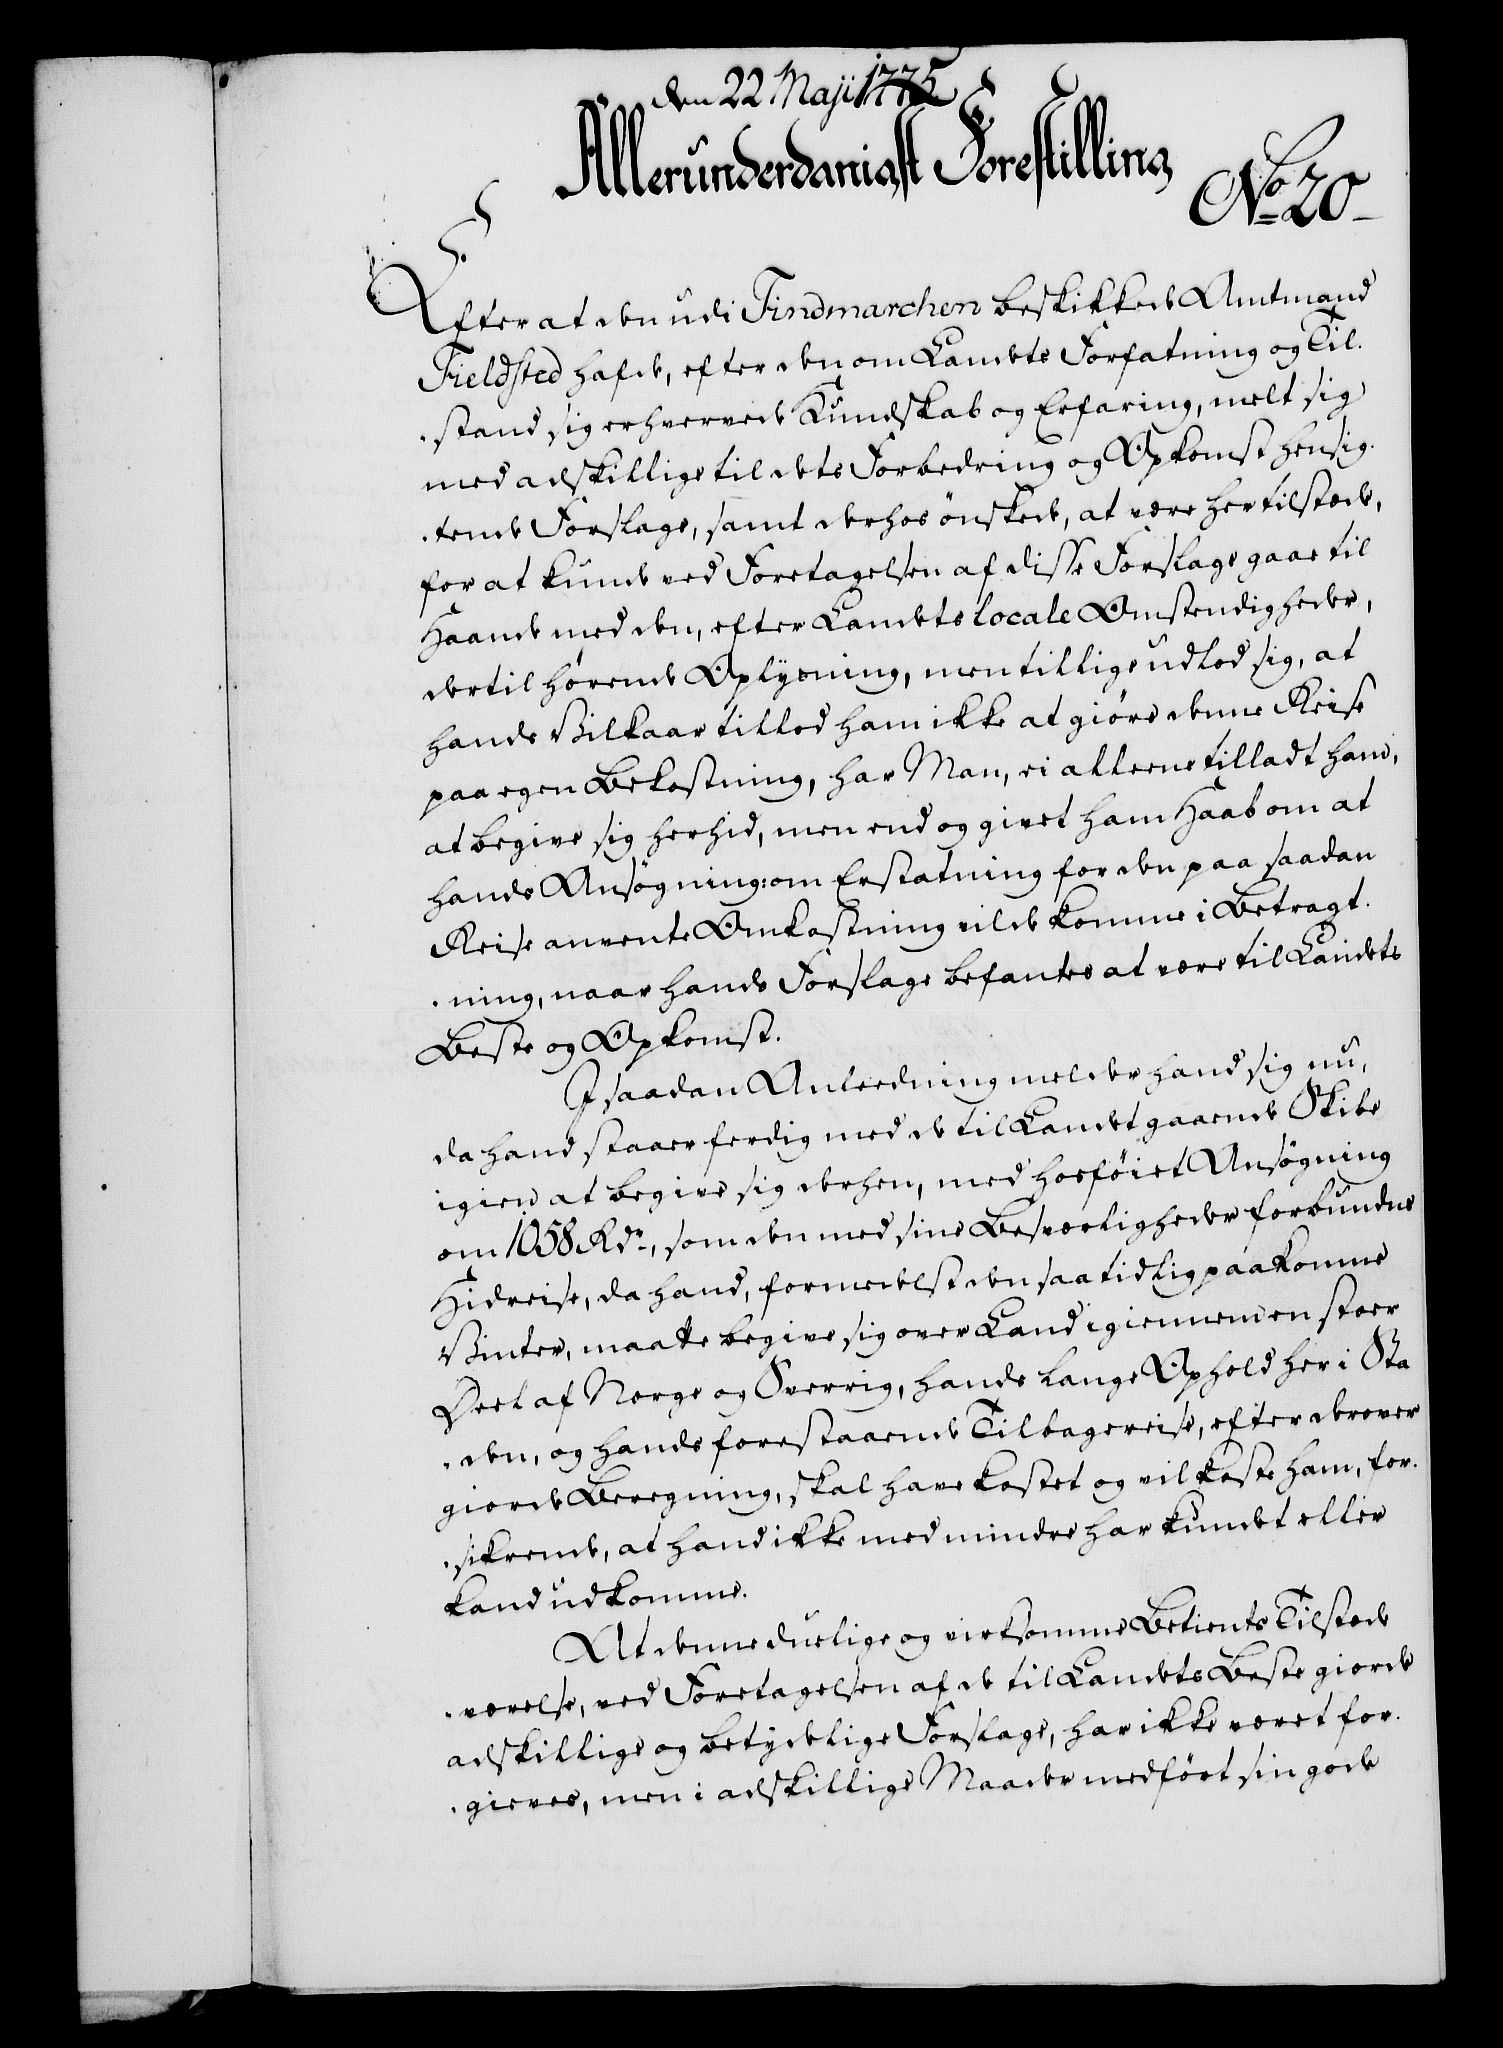 den 22 Maji 1775
Allerunderdanigst Forestilling
No 20
Efter at den udi Findmarchen beskikkede Amtmand
Fieldsted hafde, efter den om Landets Forfatning og Til-
stand sig erhvervede Kundskab og Erfaring, meldt sig
med adskillige til dets Forbedring og Opkomst hensig-
tende Forslage, samt derhos önskede, at være her tilstæde,
for at kunde ved Foretagelsen af disse Forslage gaae til
Haande med den, efter Landets locale Omstendigheder,
dertil hørende Oplysning, men tillige udlod sig, at
hands Vilkaar tillod ham ikke at giöre denne Reise
paa egen Bekostning, har Man, ei alleene tilladt ham,
at begive sig herhid, men end og givet ham Haab om at
hands Ansögning: om Erstatning for den paa saadan
Reise anvente Omkostning vilde komme i Betragt-
ning, naar hands Forslage befantes at være til Landets
Beste og Opkomst.
I saadan Anledning melder hand sig nu,
da hand staaer ferdig med de til Landet gaaende Skibe
igien at begive sig derhen, med hosföiet Ansögning
om 1058 Rdr, som den med sine Besværligheder forbundne
Hidreise, da hand, formedelst den saa tidlig paakomne
Vinter, maatte begive sig over Land igiennem en stoer
Deel af Norge og Sverrig, hands lange Ophold her i Sta-
den, og hands forestaaende Tilbagereise, efter derover
giorde Beregning, skal have kostet og vil koste ham, for-
sikrende, at hand ikke med mindre har kundet eller
kand udkomme.
At denne duelige og virksomme Betients Tilstæde-
værelse, ved Foretagelsen af de til Landets Beste giorde
adskillige og betydelige Forslage, har ikke været for-
gieves, men i adskillige Maader medfört sin gode